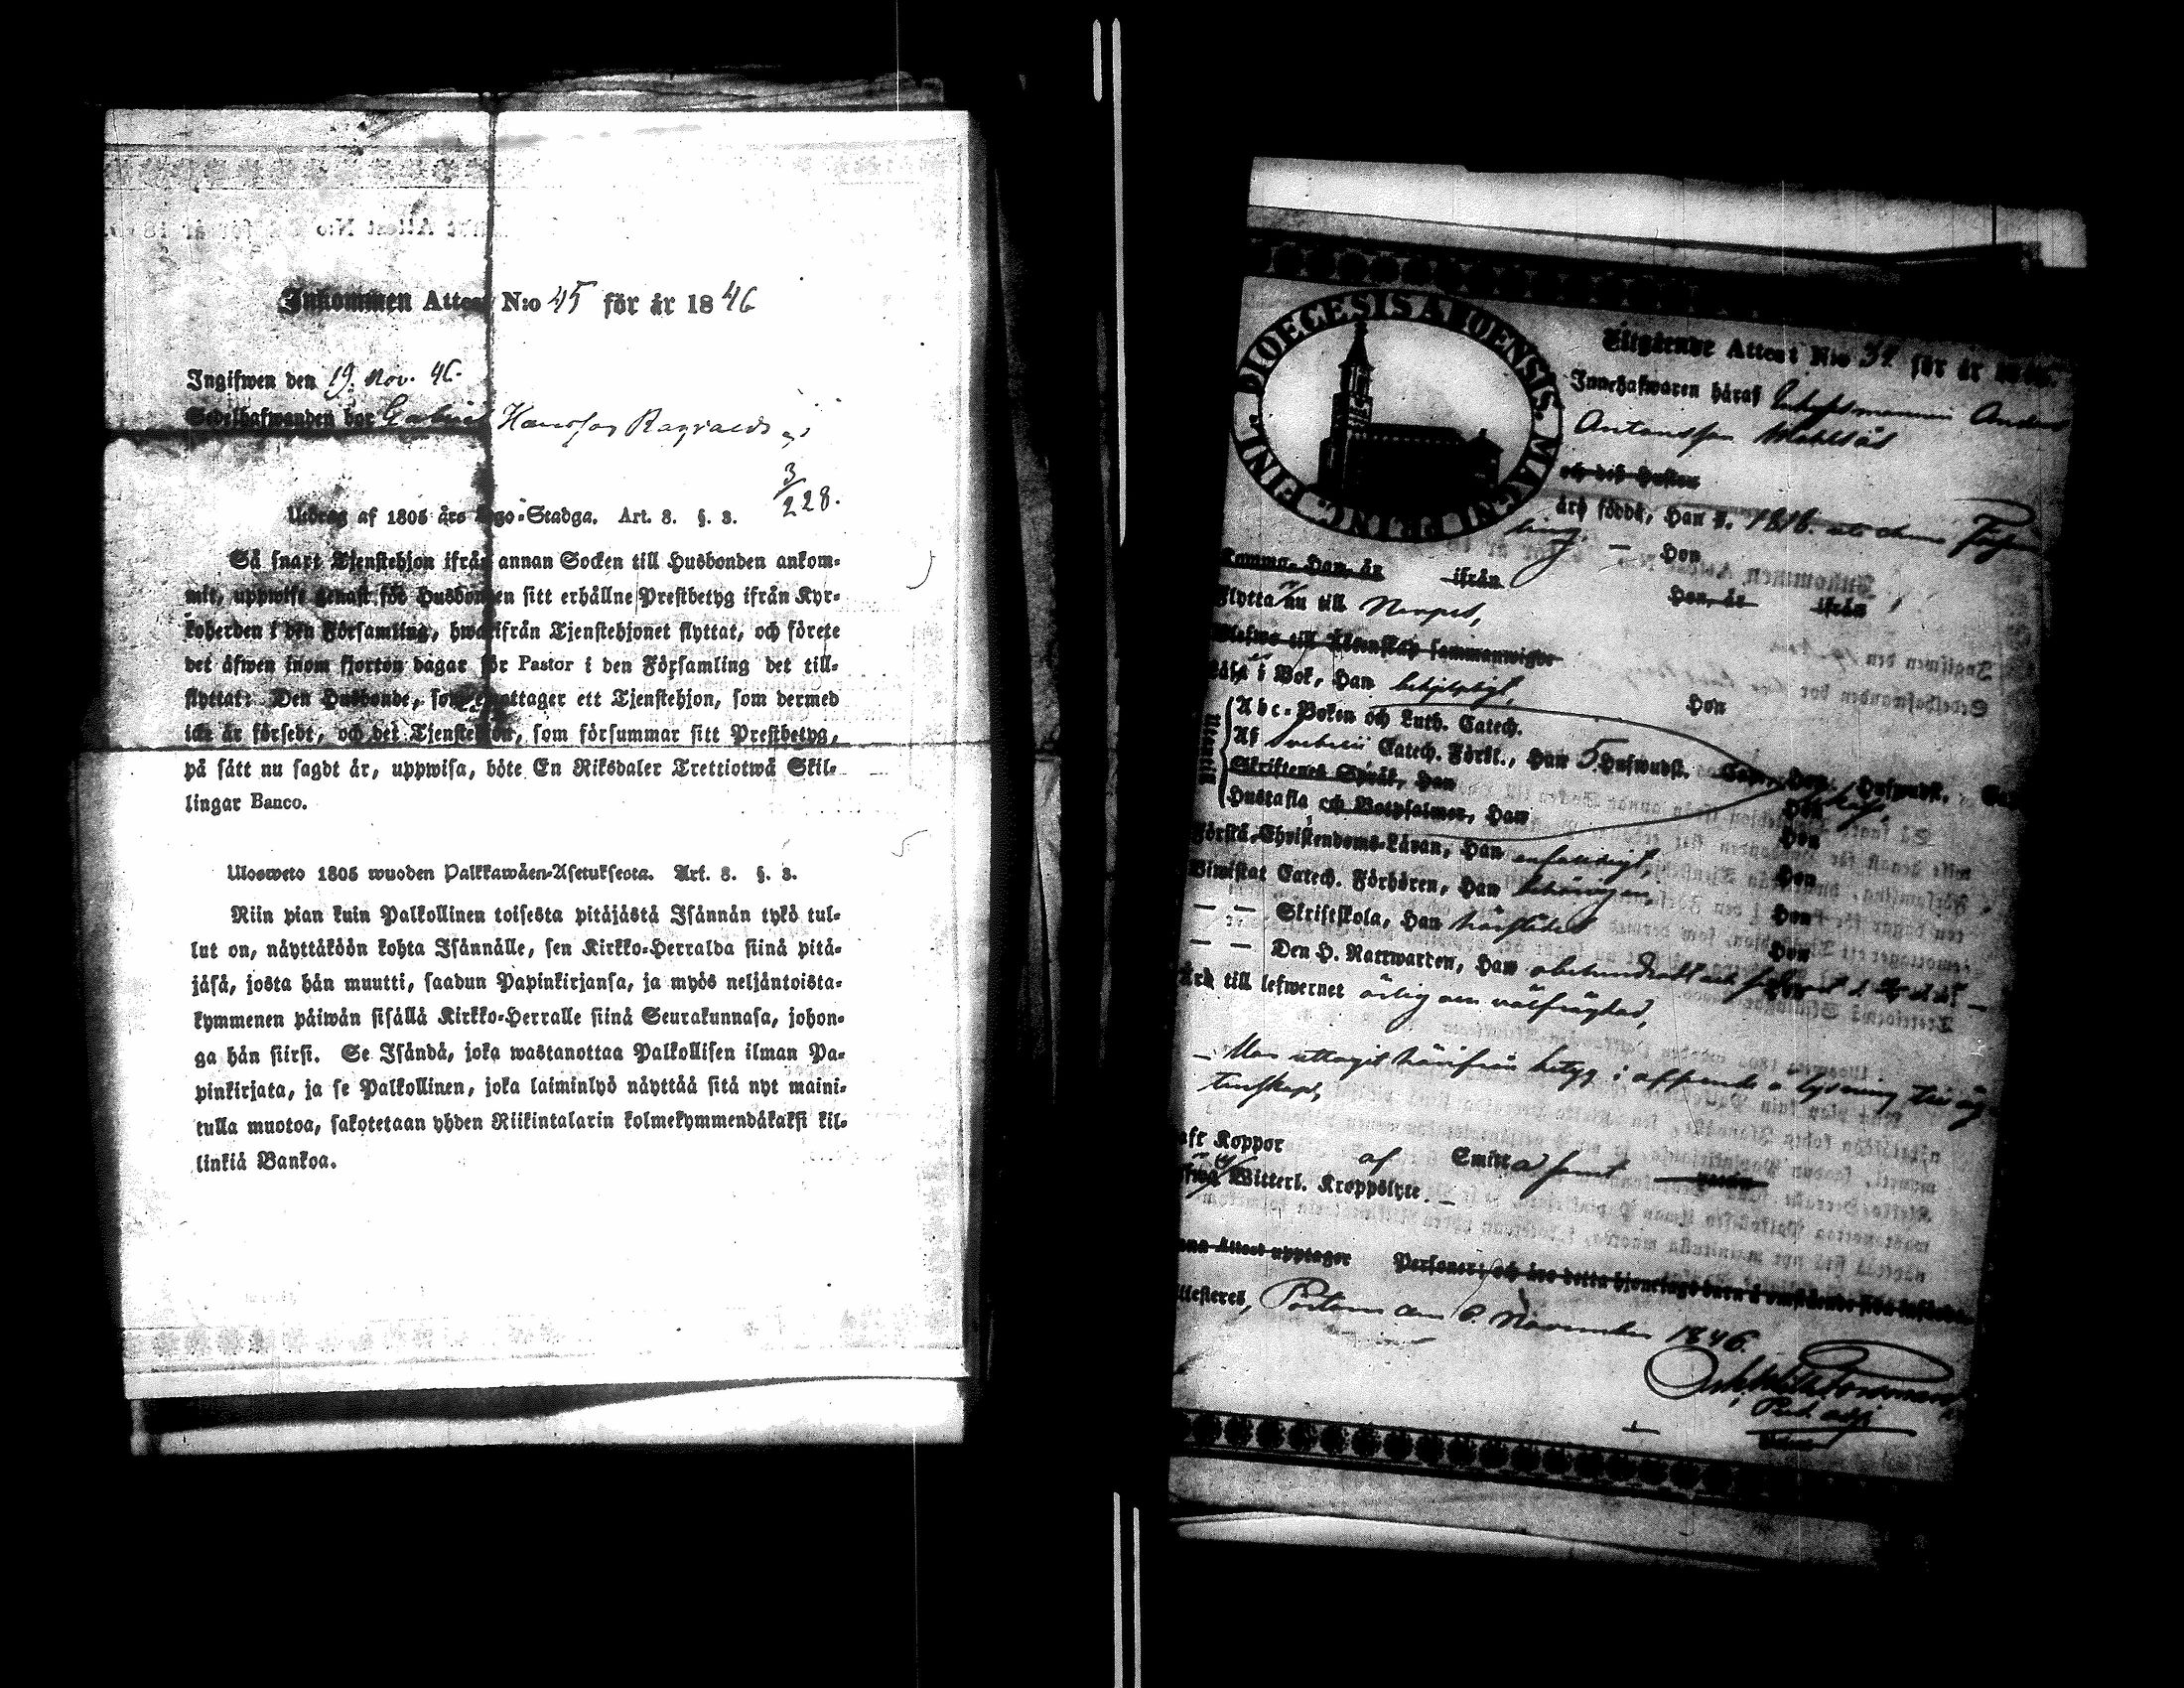 Inkommen Attest N:o 45 för år 1846
Ingifwen den 19. Nov. 46.
Sedelhafwanden bor Gabriel Hansson Ragvalds
3/228.
Utdrag af 1805 års Lego-Stadga. Art. 8. §. 3.
Så snart Tjenstehjon ifrån annan Socken till Husbonden ankom-
mit, uppwise genast för Husbonden sitt erhållne Prestbetyg ifrån Kyr-
koherden i den Församling, hwarifrån Tjenstehjonet flyttat, och förete
det äfwen inom fjorton dagar för Pastor i den Församling det till-
flyttat: Den Husbonde, som emottager ett Tjenstehjon, som dermed
icke är försedt, och det Tjenstehjon, som försummar sitt Prestbetyg,
på sätt nu sagdt är, uppwisa, böte En Riksdaler Trettiotwå Skil-
lingar Banco.
Ulosweto 1805 wuoden Palkkawäen-Asetuksesta. Art. 8. §. 3.
Niin pian kuin Palkollinen toisesta pitäjästä Isännän tykö tul-
lut on, näyttäköön kohta Isännälle, sen Kirkko-Herralda siinä pitä-
jäsä, josta hän muutti, saadun Papinkirjansa, ja myös neljäntoista-
kymmenen päiwän sisällä Kirkko-Herralle siinä Seurakunnasa, johon-
ga hän siirsi. Se Isändä, joka wastanottaa Palkollisen ilman Pa-
pinkirjata, ja se Palkollinen, joka laiminlyö näyttää sitä nyt maini-
tulla muotoa, sakotetaan yhden Riikintalarin kolmekymmendäkaksi kil-
linkiä Bankoa.
DIOECESIS ABOENSIS. MAGNI PRINC. FINL.
Utgående Attest N:o för år 1846.
Innehafwaren häraf Anders
Antonsson
och deß Hustru
äro födde, Han 1816.
Hon
Komma, Han, år ifrån Hon, år ifrån
Flytta nu till Nerpes,
Blefwo till Äktenskap sammanwigde
Läsa i Bok, Han behjelpligt, Hon
Utantill
Abc-Boken och Luth. Catech.
Af Svebelii Catech. Förkl., Han 5 Hufwudst. Cap., Hon, Hufwudst.
Skriftenes Språk, Han Hon
Hustafla och Botpsalmer, Han Hon
Förstå Christendoms-Läran, Han enfaldigt, Hon
Biwistat Catech. Förhören, Han behörigen, Hon
— — Skriftskola, Han Hon
— — Den H. Nattwarden, Han obehindradt och
ärd till lefwernet ärlig och välfräjdad,
— Har uttagit härifrån betyg i afseende å lysning till äg-
tenskap,
aft Koppor af Smitta samt
Witterl. Kroppslyte. —
Attest upptager Personer; och äro detta hjonelags barn å omstående sida
Attesteres, Pörtom den 8. November 1846.
Past. adj.